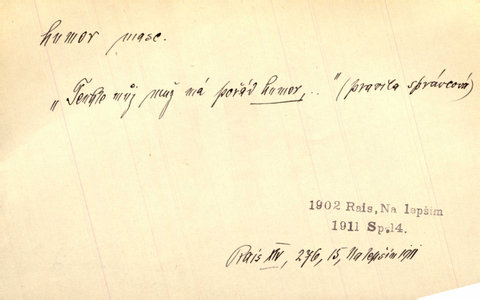 humor masc.
„Tenhle můj muž má pořád humor, .." (pravila správcová)
1902 Rais, Na lepším
1911 Sp.14.
Rais XIV, 276, 15, Na lepším 1911